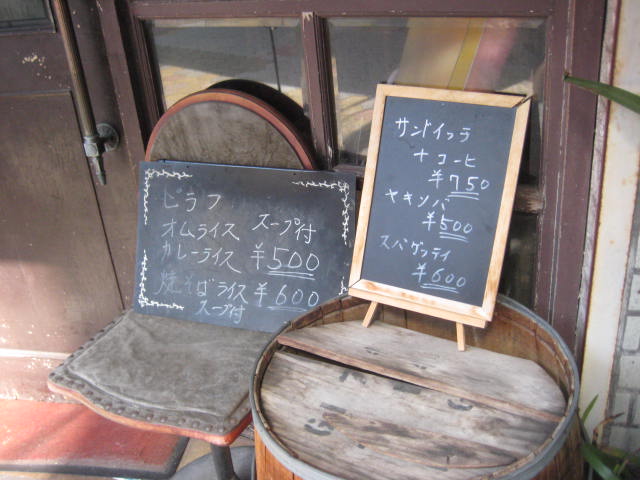 ピラフ
オムライス スープ付
カレーライス ¥500
焼そばライス ¥600
スープ付
サンドイッチ
+コーヒ
¥750
ヤキソバ
¥500
スパゲッティ
¥600